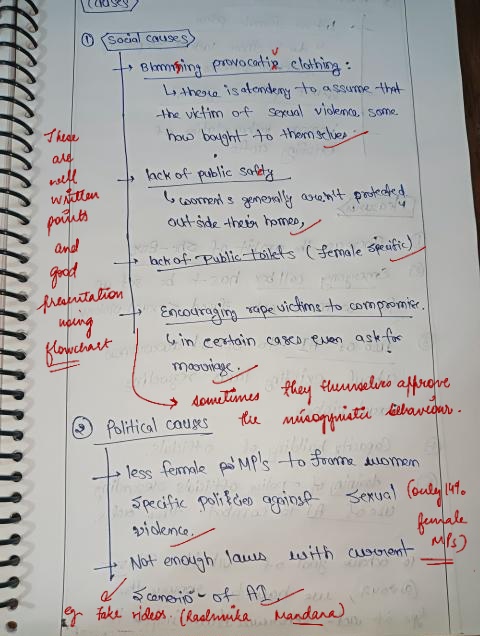 Causes
① Social causes
→ Blamming provocative clothing :
↳ there is atendency to assume that
the victim of sexual violence some
how bought to themselves.
→ lack of public safety
↳ women's generally aren't protected
outside their homes,
→ lack of Public toilets (female specific)
→ Encouraging rape victims to compromise.
↳ in certain cases even ask for
marriage.
→ sometimes they themselves approve
the misogynistic behaviour.
These
are
well
written
points
and
good
presentation
using
flowchart
② Political causes
→ less female MP's to frame women
specific policies against sexual
violence.
(only 14%
female
MPs)
→ Not enough laws with current
Scenerio of AI.
eg- Fake videos (Rashmika Mandana)